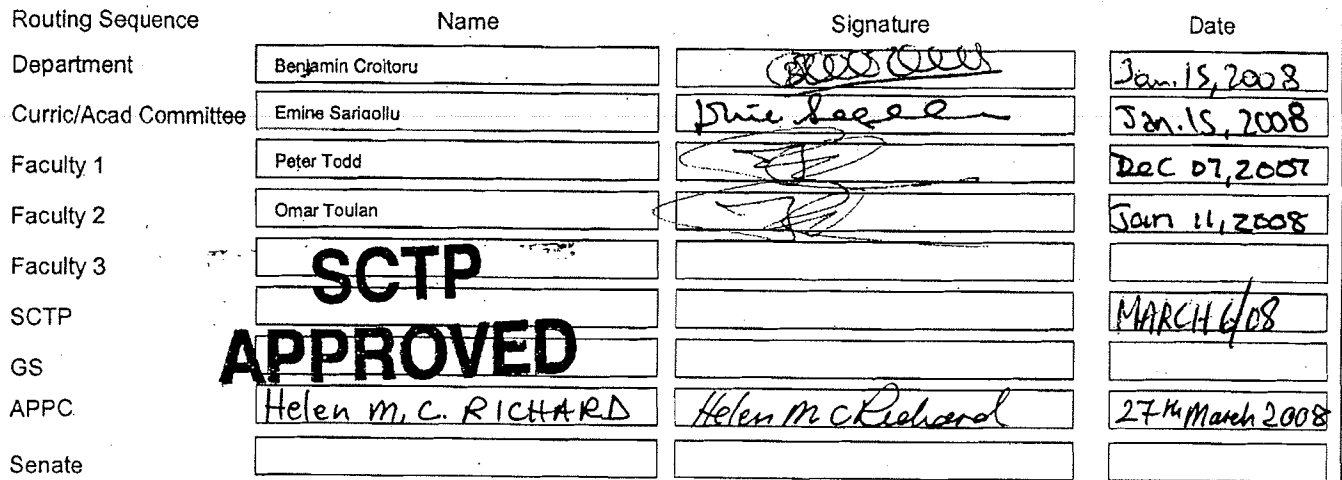 Routing Sequence Name Signature Date
Department Benjamin Croitoru Jan. 15, 2008
Curric/Acad Committee Emine Sarigollu Jan. 15, 2008
Faculty 1 Peter Todd Dec 07, 2007
Faculty 2 Omar Toulan Jan 11, 2008
Faculty 3
SCTP
SCTP MARCH 6/08
APPROVED
GS
APPC Helen M. C. RICHARD Helen M C Richard 27th March 2008
Senate